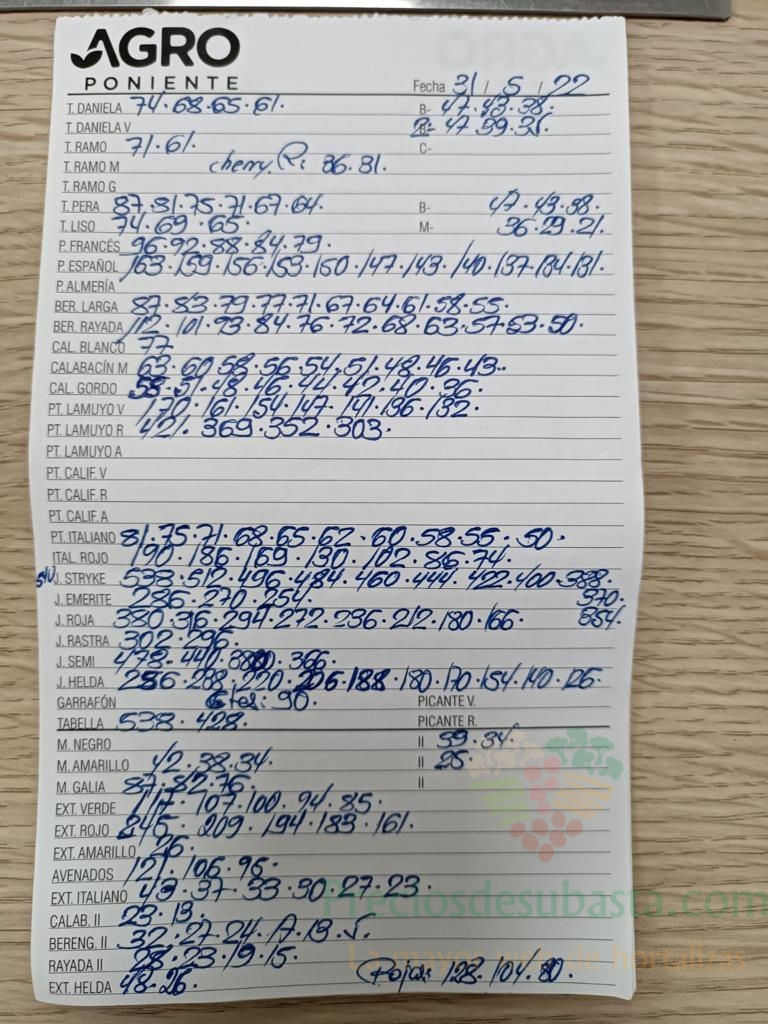 AGRO
PONIENTE
Fecha 31 / 5 / 22
T. DANIELA 74.68.65.61. B- 47.43.38.
T. DANIELA V 47 39.31.
T. RAMO 71.61. C-
T. RAMO M cherry R: 86.81.
T. RAMO G
T. PERA 87.81.75.71.67.64. B- 47.43.38.
T. LISO 74.69.65. M- 36.29.21.
P. FRANCÉS 96.92.88.84.79.
P. ESPAÑOL 163.159.156.153.150.147.143.140.137.134.131.
P. ALMERÍA
BER. LARGA 87.83.79.77.71.67.64.61.58.55.
BER. RAYADA 112.101.93.84.76.72.68.63.57.53.50.
CAL. BLANCO 77
CALABACÍN M 63.60.58.56.54.51.48.46.43.
CAL. GORDO 53.51.48.46.44.42.40.36.
PT. LAMUYO V 170.161.154.147.141.136.132.
PT. LAMUYO R 421.369.352.303.
PT. LAMUYO A
PT. CALIF. V
PT. CALIF. R
PT. CALIF. A
PT. ITALIANO 81.75.71.68.65.62.60.58.55.50.
ITAL. ROJO 190.186.169.130.102.86.74.
J. STRYKE 538.512.496.484.460.444.422.400.388.
J. EMERITE 286.270.254. 370.
J. ROJA 380.316.294.272.236.212.180.166. 354.
J. RASTRA 302.296.
J. SEMI 478.440. 366.
J. HELDA 288.220.206.188.180.170.154.140.126.
GARRAFÓN 90. PICANTE V.
TABELLA 538.428. PICANTE R.
M. NEGRO II 39.34.
M. AMARILLO 42.38.34. II 25.
M. GALIA 87.82.76. II
EXT. VERDE 117.107.100.94.85.
EXT. ROJO 245.209.194.183.161.
EXT. AMARILLO 26.
AVENADOS 121.106.96.
EXT. ITALIANO 43.37.33.30.27.23.
CALAB. II 23.13.
BERENG. II 32.27.24.17.13.
RAYADA II 28.23.19.15.
EXT. HELDA 48.26. Rojas: 128.104.80.
Preciosdesubasta.com